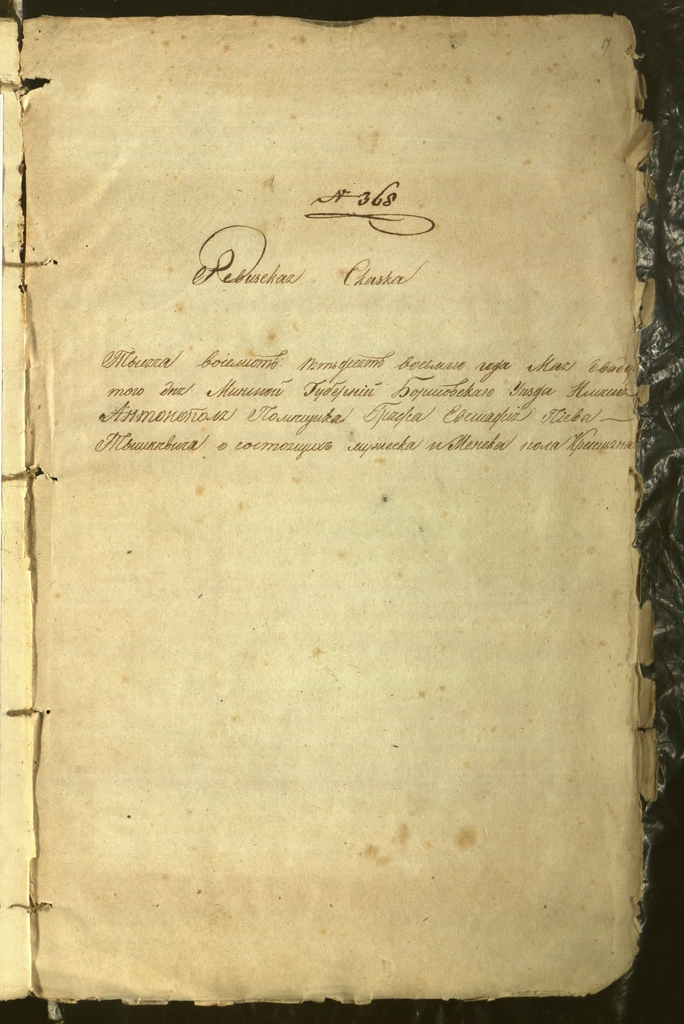 17
№ 368
Ревизская Сказка
Тысяча восемьсотъ пятьдесятъ восьмаго года Мая двадца
того дня Минской Губерніи Борисовскаго Уезда Имѣнія
Антонополя Помещика Графа Евстафія Піева
Тышкевича о состоящихъ мужеска и Женска пола Крестьяна